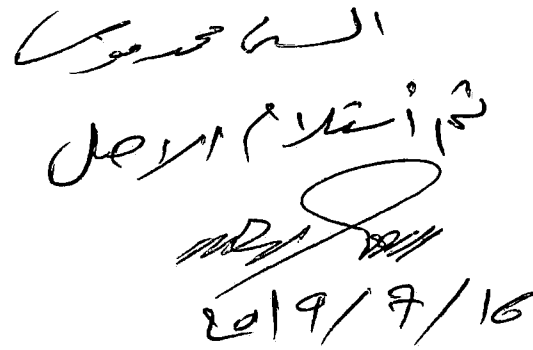 السيد محمد موسى
تم أستلام الاصل
2019/7/16